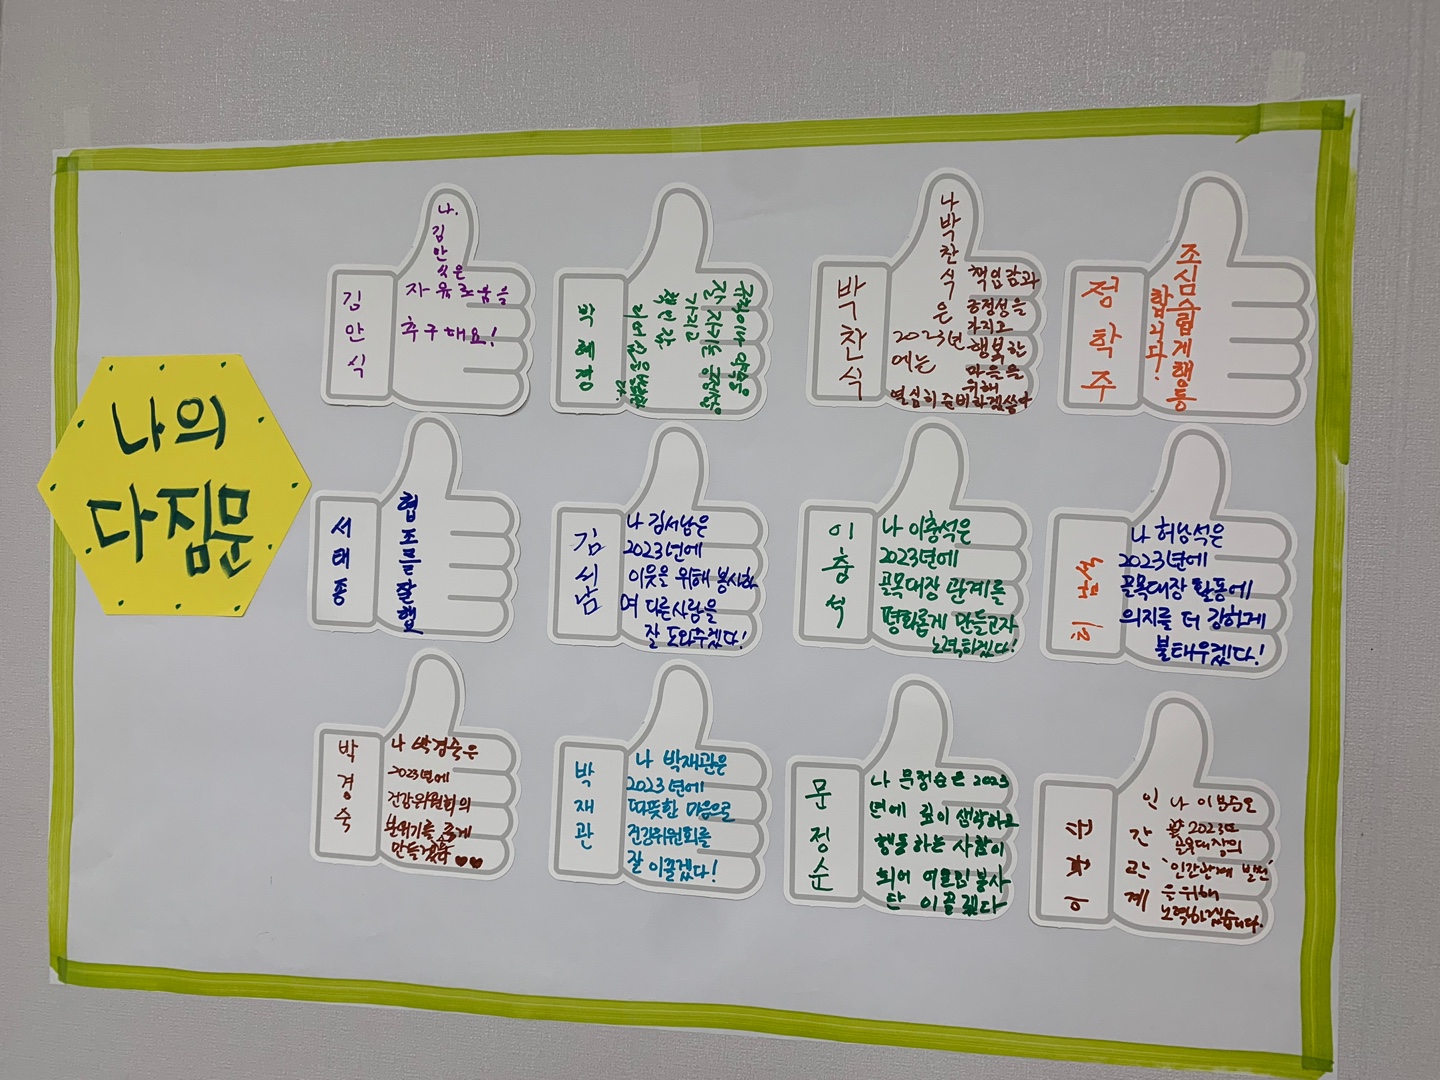 나의
다짐문
김안식
나.
김
안
식은
자유로움을
추구해요!
박혜경
가지고
책임감
박찬식
나박찬식은
2023년
에는
책임감과
긍정성을
가지고
행복한
마을을
위해
열심히 준비하겠습다
정학주
조심스럽게행동
합니다.
서태종
협조를잘햄
김서남
나 김서남은
2023년에
이웃을 위해 봉사하
여 다른사람을
잘 도와주겠다!
이충석
나 이충석은
2023년에
골목대장 관계를
평화롭게 만들고자
노력하겠다!
나 허남석은
2023년에
골목대장 활동에
의지를 더 강하게
불태우겠다!
박경숙
나 박경숙은
2023년에
건강위원회의
분위기를 좋게
만들겠음
박재관
나 박재관은
2023년에
따뜻한 마음으로
건강위원회를
잘 이끌겠다!
문정순
나 문정순은 2023
년에 깊이 생각하고
행동하는 사람이
되어 어울림봉사
단 이끌겠다
인간관계
나
2023년
골목대장의
'인간관계 발전'
을위해
노력하겠습니다.